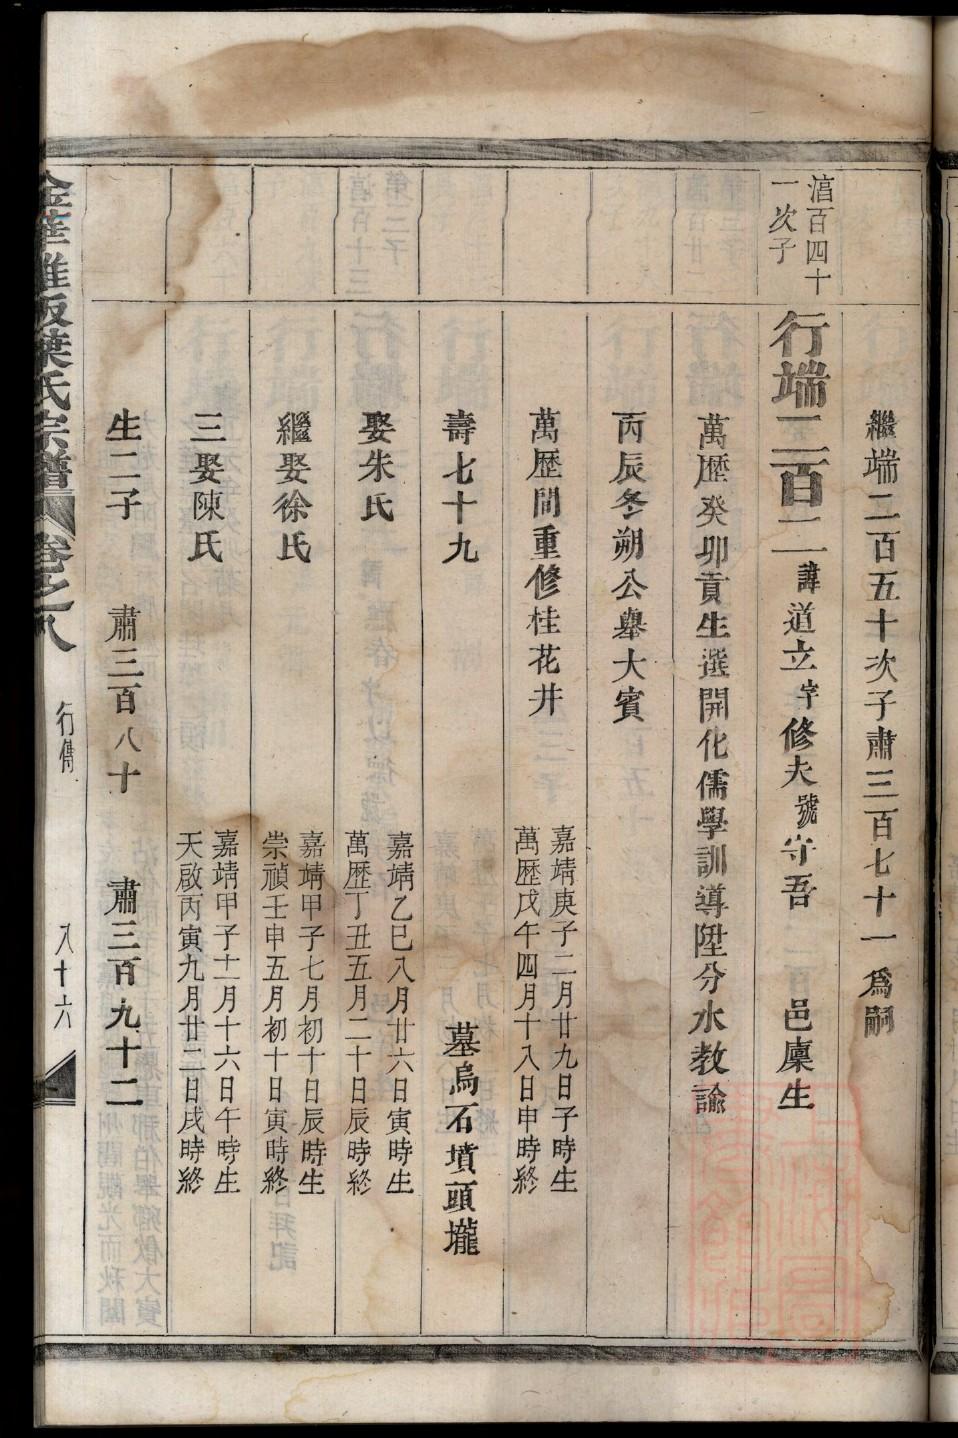 繼端二百五十次子肅三百七十一爲嗣
淐百四十
一次子
行端二百二 諱道立字修夫號守吾 邑廩生
萬歷癸卯貢生選開化儒學訓導陞分水教諭
丙辰冬朔公舉大賓
萬歷間重修桂花井
嘉靖庚子二月廿九日子時生
萬歷戊午四月十八日申時終
壽七十九
墓烏石墳頭壠
娶朱氏
嘉靖乙巳八月廿六日寅時生
萬歷丁丑五月二十日辰時終
繼娶徐氏
嘉靖甲子七月初十日辰時生
崇禎壬申五月初十日寅時終
三娶陳氏
嘉靖甲子十一月十六日午時生
天啟丙寅九月廿二日戌時終
生二子 肅三百八十 肅三百九十二
金華雅畈葉氏宗譜 卷之八 行傳 八十六